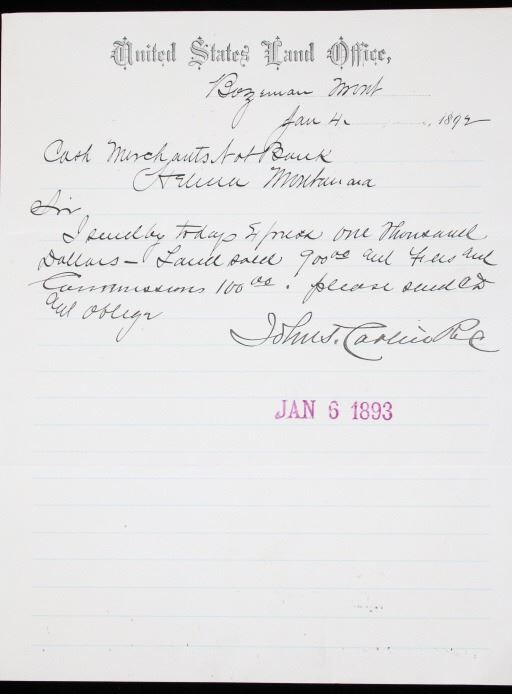 United States Land Office,
Bozeman Mont
Jan 4. , 1892
Cash Merchants Nat Bank
Helena Montana
Sir
I send by todays Express one Thousand
Dollars – Land sold 900 00 and Fees and
Commissions 100 00. please send CD
and oblige
John T. Carlin Rec
JAN 6 1893